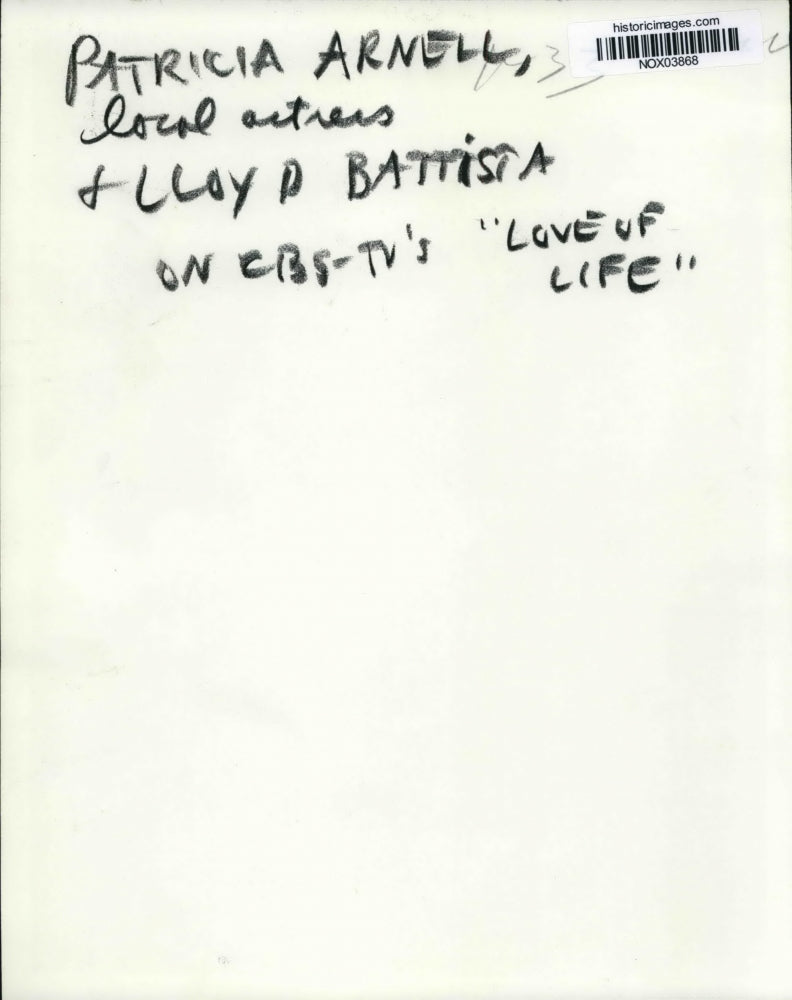 historicimages.com
NOX03868
PATRICIA ARNELL,
local actress
& LLOYD BATTISTA
ON CBS-TV's "LOVE OF
LIFE"